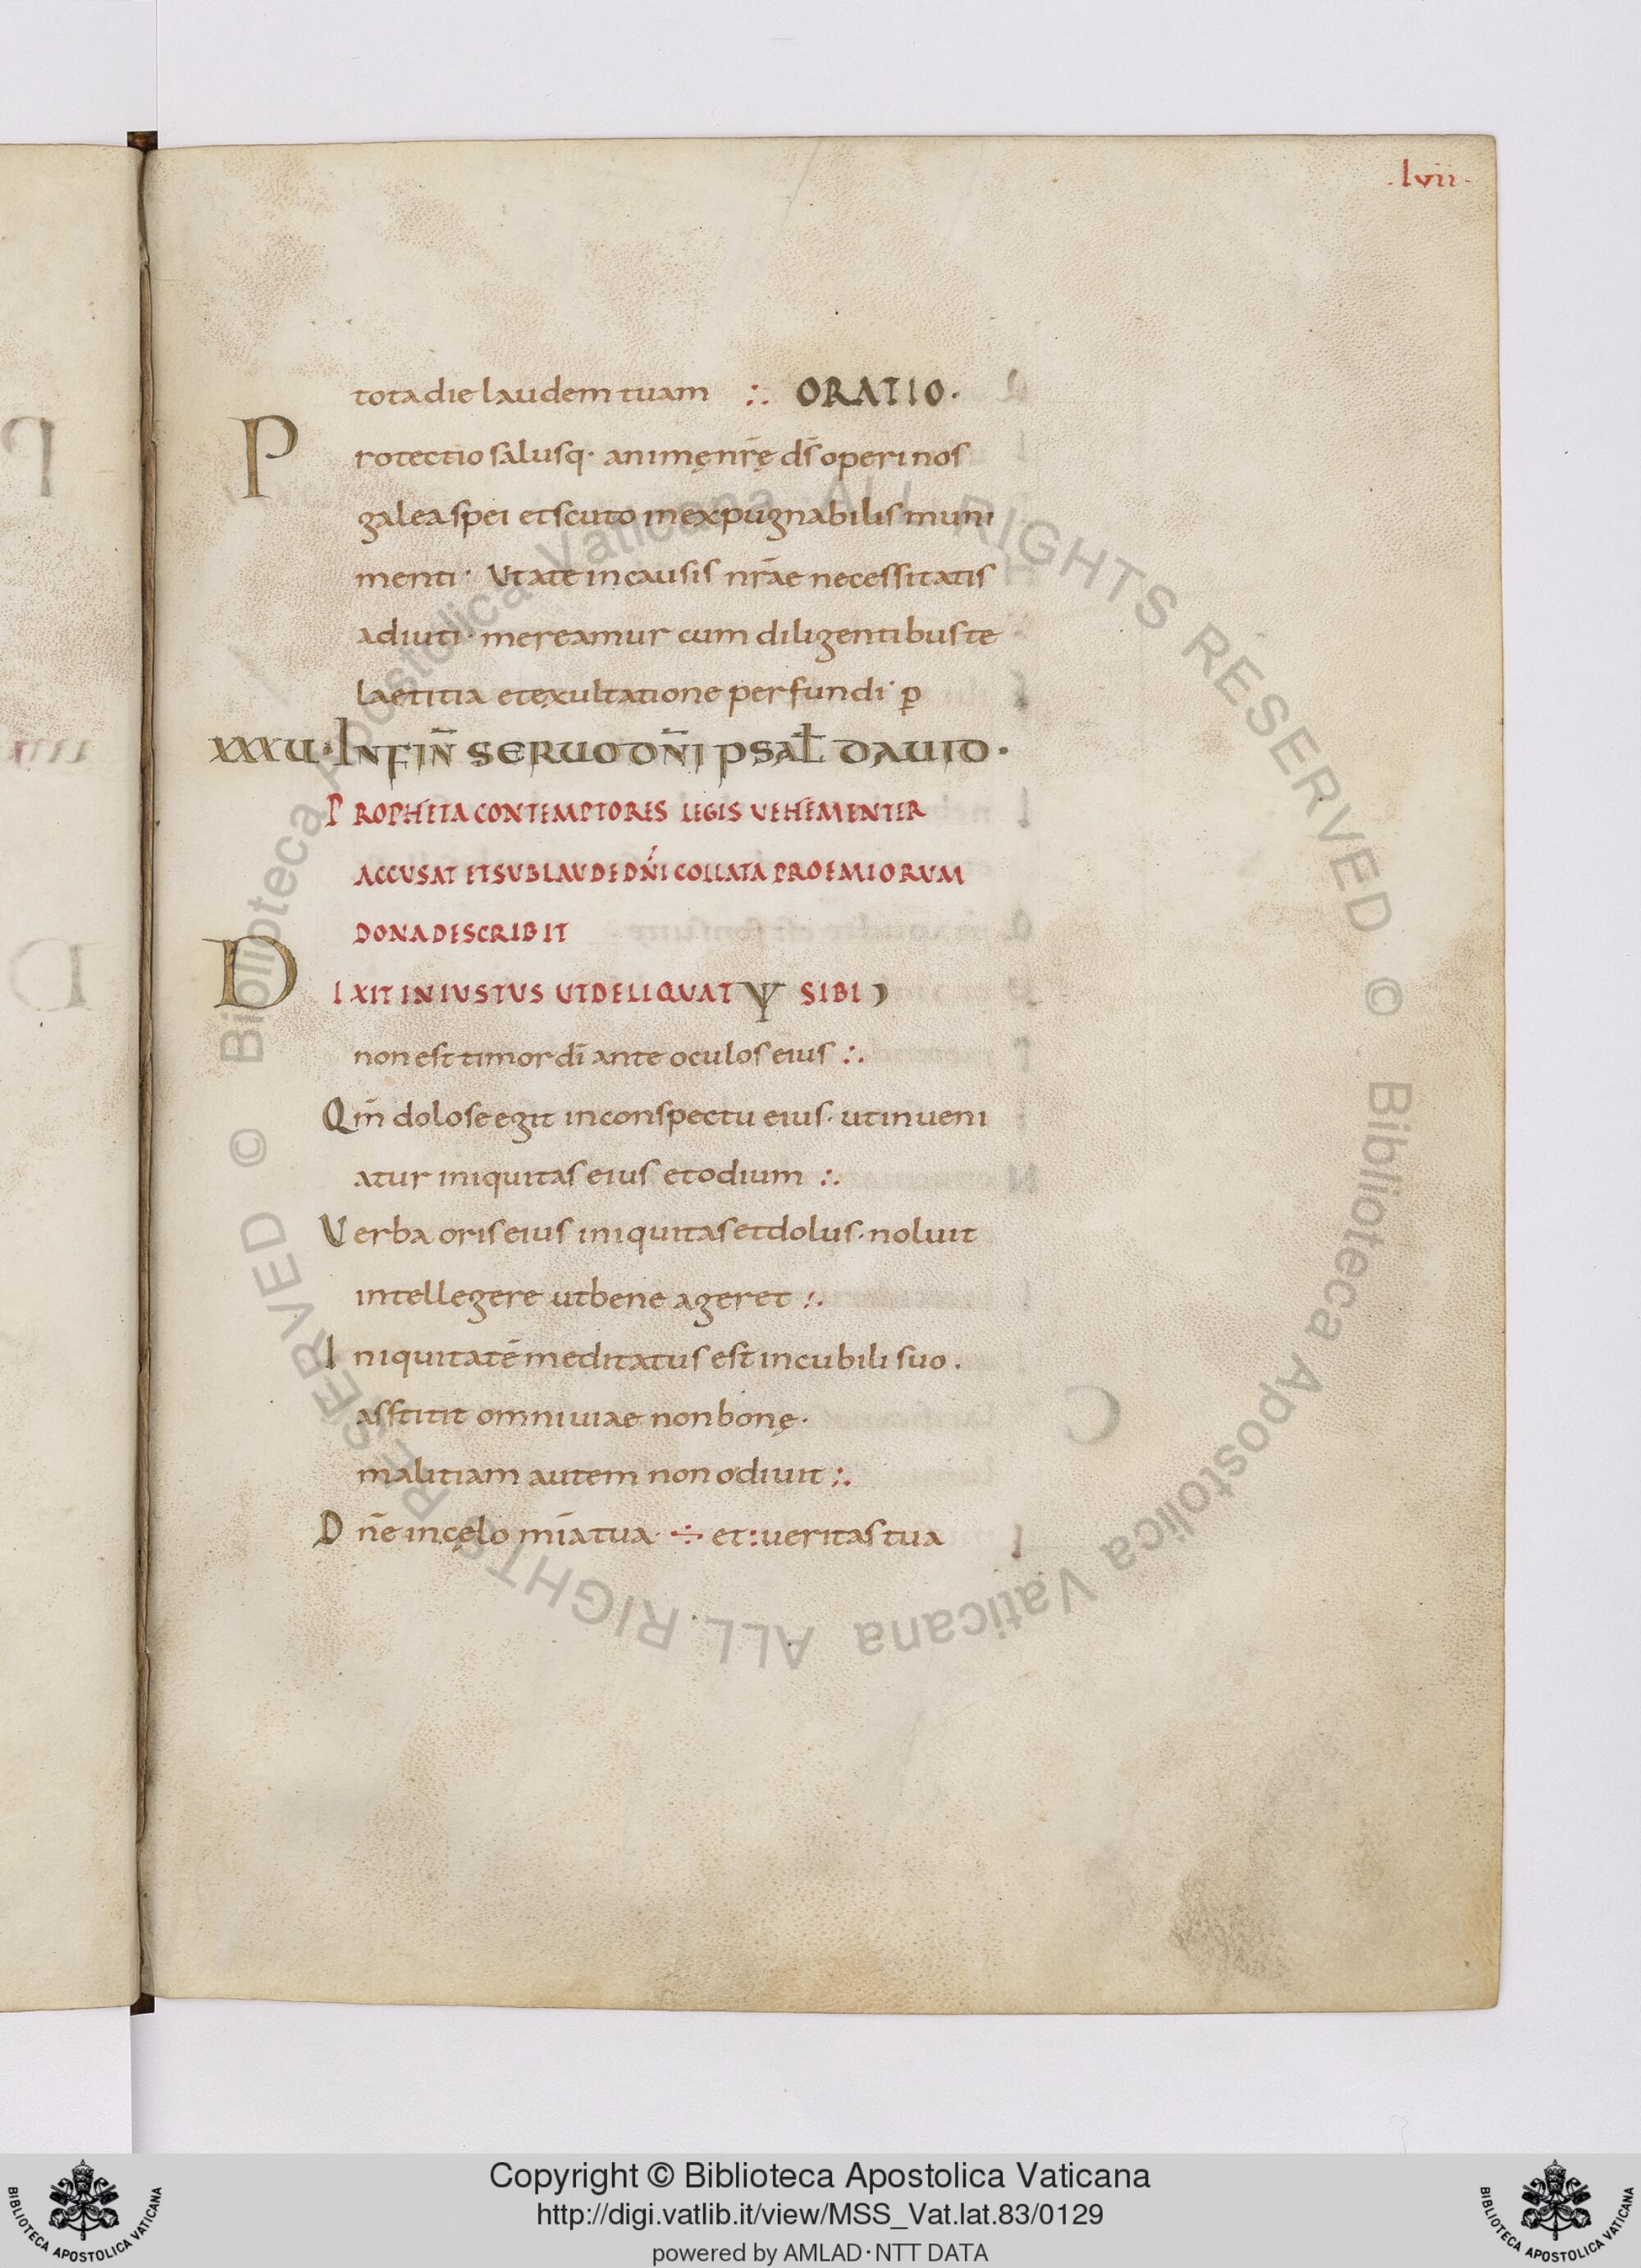 ·lvii·
tota die laudem tuam ∴ ORATIO·
Protectio salusq· animę nr̄ę ds̄ operi nos
galea spei et scuto inexpugnabilis muni
menti· Vt a te in causis nr̄ae necessitatis
adiuti· mereamur cum diligentibus te
laetitia et exultatione perfundi· p̄
XXXU· IN FIN̄ SERUO DN̄I PSAL̄ DAUID·
PROPHETA CONTEMPTORES LEGIS VEHEMENTER
ACCUSAT ET SUB LAUDE DN̄I COLLATA PROEMIORUM
DONA DESCRIBIT
DIXIT INIUSTUS UT DELIQUAT Ψ SIBI
non est timor dī ante oculos eius ∴
Qm̄ dolose egit in conspectu eius· ut inueni
atur iniquitas eius et odium ∴
Verba oris eius iniquitas et dolus· noluit
intellegere ut bene ageret ∴
Iniquitatē meditatus est in cubili suo·
asstitit omni uiae non bonę·
malitiam autem non odiuit ∴
Dn̄e in cęlo mīa tua· ÷ et: ueritas tua
© Biblioteca Apostolica Vaticana ALL RIGHTS RESERVED © Biblioteca Apostolica Vaticana ALL RIGHTS RESERVED
BIBLIOTECA APOSTOLICA VATICANA
Copyright © Biblioteca Apostolica Vaticana
http://digi.vatlib.it/view/MSS_Vat.lat.83/0129
powered by AMLAD·NTT DATA
BIBLIOTECA APOSTOLICA VATICANA